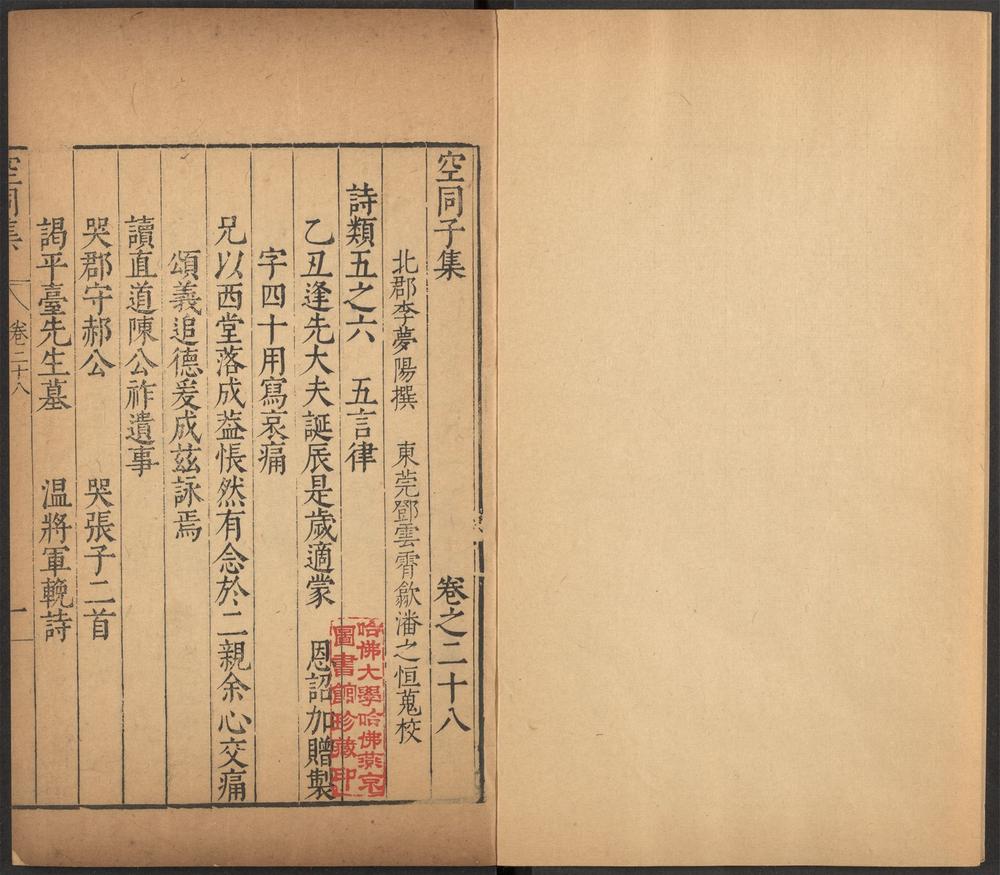 空同子集　卷之二十八
北郡李夢陽撰　東莞鄧雲霄歙潘之恒蒐校
詩類五之六　五言律
乙丑逢先大夫誕辰是歲適蒙　恩詔加贈製
字四十用寫哀痛
兄以西堂落成益悵然有念於二親余心交痛
頌義追德爰成茲詠焉
讀直道陳公祚遺事
哭郡守郝公　哭張子二首
謁平臺先生墓　温將軍輓詩
空同集　卷二十八　一
哈佛大學哈佛燕京
圖書館珍藏印